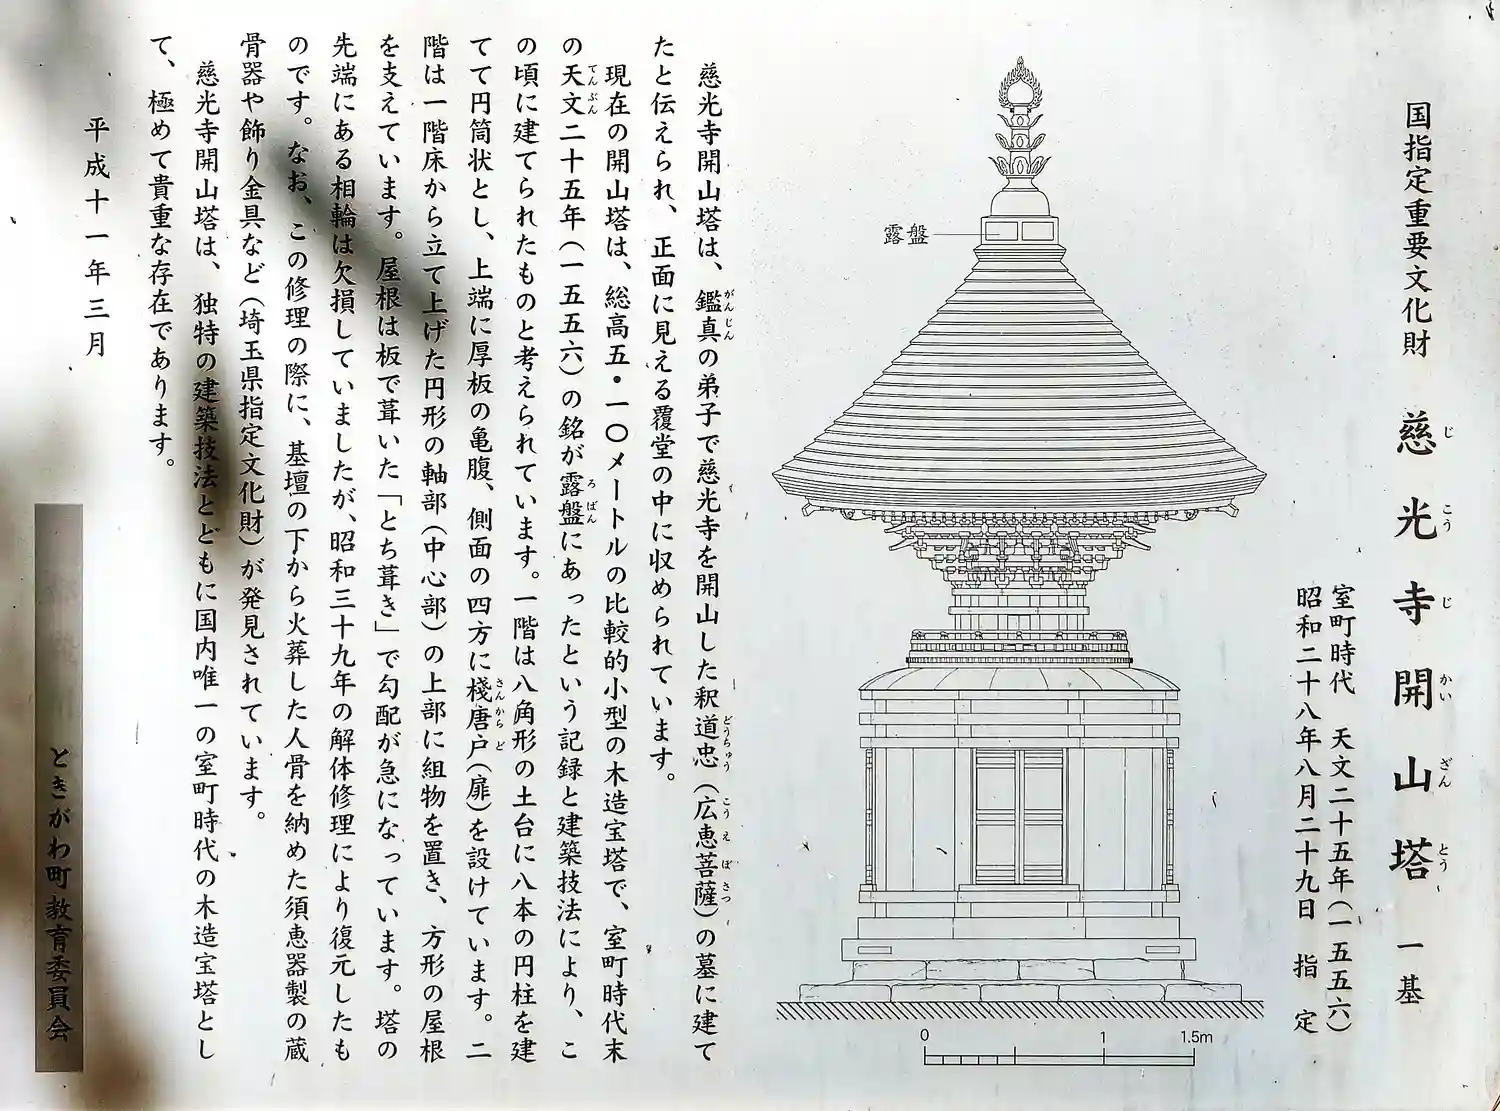 国指定重要文化財　慈光寺開山塔　一基
室町時代　天文二十五年(一五五六)
昭和二十八年八月二十九日　指　定
露盤
0　1　1.5m
慈光寺開山塔は、鑑真の弟子で慈光寺を開山した釈道忠(広恵菩薩)の墓に建て
たと伝えられ、正面に見える覆堂の中に収められています。
現在の開山塔は、総高五・一〇メートルの比較的小型の木造宝塔で、室町時代末
の天文二十五年(一五五六)の銘が露盤にあったという記録と建築技法により、こ
の頃に建てられたものと考えられています。一階は八角形の土台に八本の円柱を建
てて円筒状とし、上端に厚板の亀腹、側面の四方に棧唐戸(扉)を設けています。二
階は一階床から立て上げた円形の軸部(中心部)の上部に組物を置き、方形の屋根
を支えています。屋根は板で葺いた「とち葺き」で勾配が急になっています。塔の
先端にある相輪は欠損していましたが、昭和三十九年の解体修理により復元したも
のです。なお、この修理の際に、基壇の下から火葬した人骨を納めた須恵器製の蔵
骨器や飾り金具など(埼玉県指定文化財)が発見されています。
慈光寺開山塔は、独特の建築技法とどもに国内唯一の室町時代の木造宝塔とし
て、極めて貴重な存在であります。
平成十一年三月
ときがわ町教育委員会